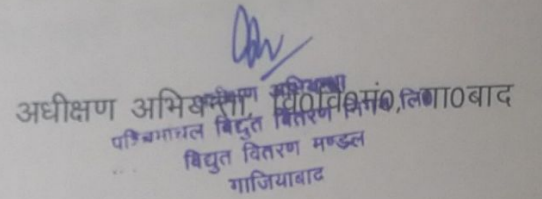 अधीक्षण अभियन्ता, वि0वि0मं0, गा0बाद
अधीक्षण अभियन्ता
पश्चिमांचल विद्युत वितरण निगम लि0
विद्युत वितरण मण्डल
गाजियाबाद